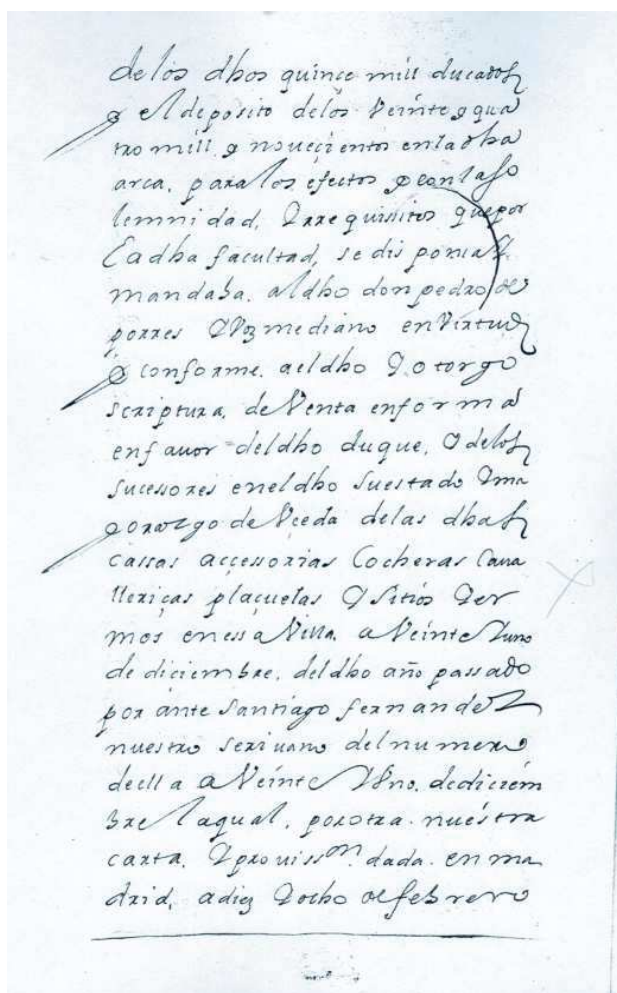 delos dhos quince mill ducados
y el deposito delos Veinte y qua
tro mill y noveçientos enla dha
arca. para los efectos y con la so
lemnidad, Y rrequissitos que por
La dha facultad, se disponia Y
mandaba. al dho don pedro de
porres Y Vozmediano en Virtud
y conforme. a el dho Y otorgo
scriptura, de Venta en forma
en favor del dho duque, Y delos
sucessores en el dho su estado Y ma
yorazgo de Vçeda delas dhas
cassas acçessorias Cocheras Caua
lleriças plaçuelas Y sitios Yer
mos en essa Villa. a Veinte Y uno
de diciembre. del dho año passado
por ante Santiago fernandez
nuestro scriuano del numero
de ella a Veinte Y Vno. de diciem
bre la qual, por otra nuestra
carta, Y prouiss.on dada en ma
drid, a diez Y ocho de febrero